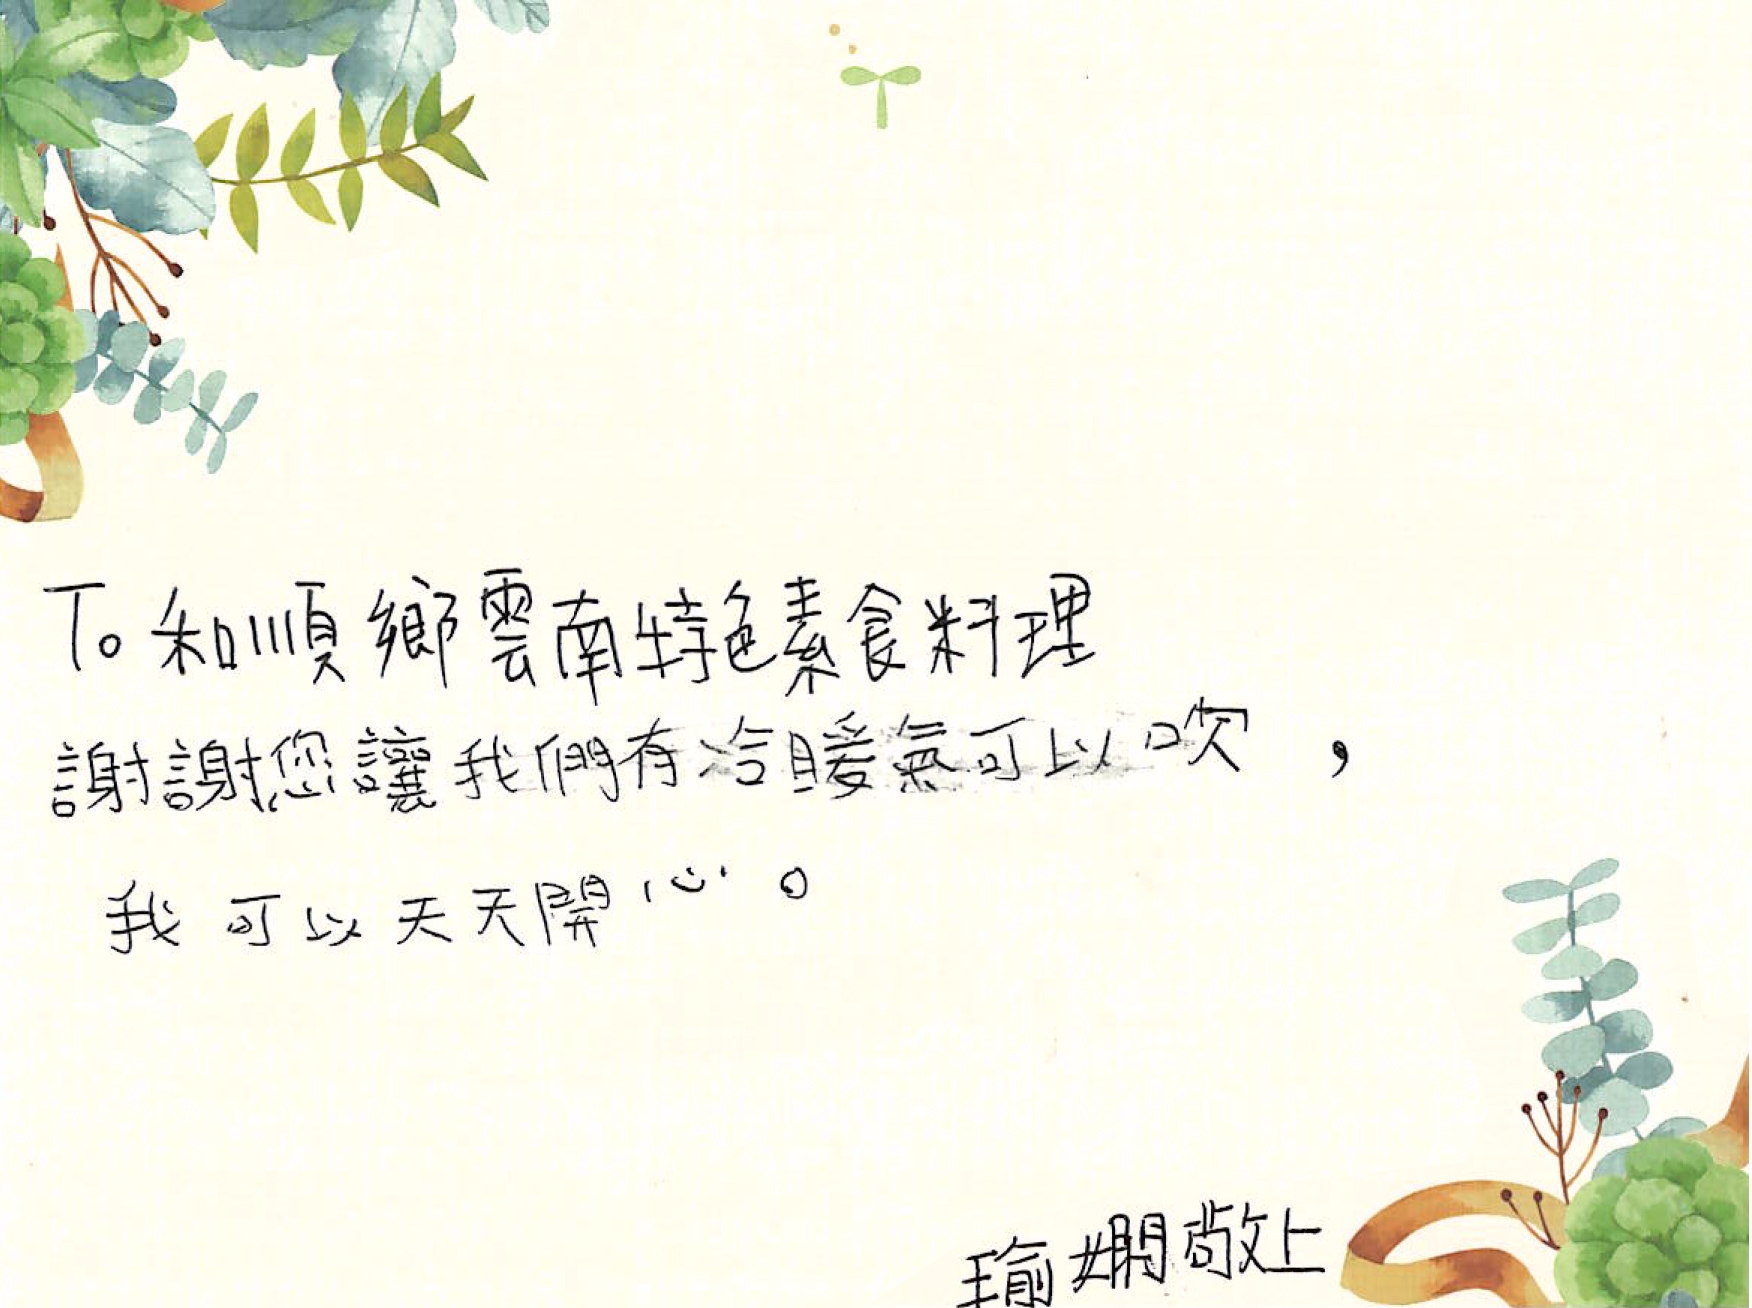 To 和順鄉雲南特色素食料理
謝謝您讓我們有冷暖氣可以吹，
我可以天天開心。
瑜嫻敬上